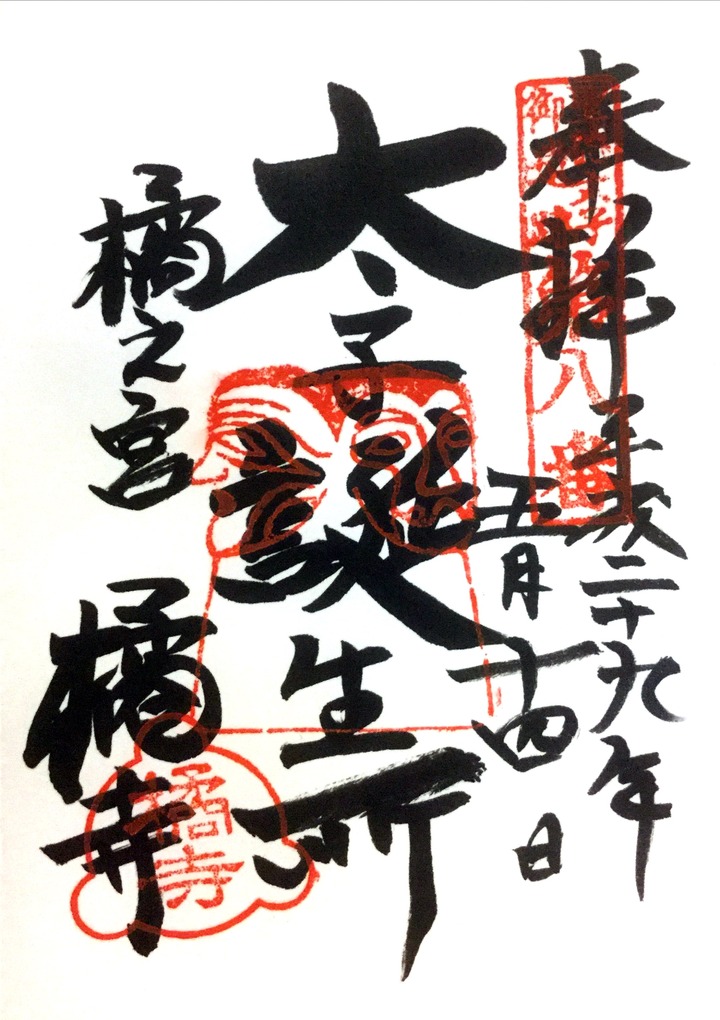 奉拝
平成二十九年
五月十四日
太子誕生所
橘之宮
橘寺
橘寺